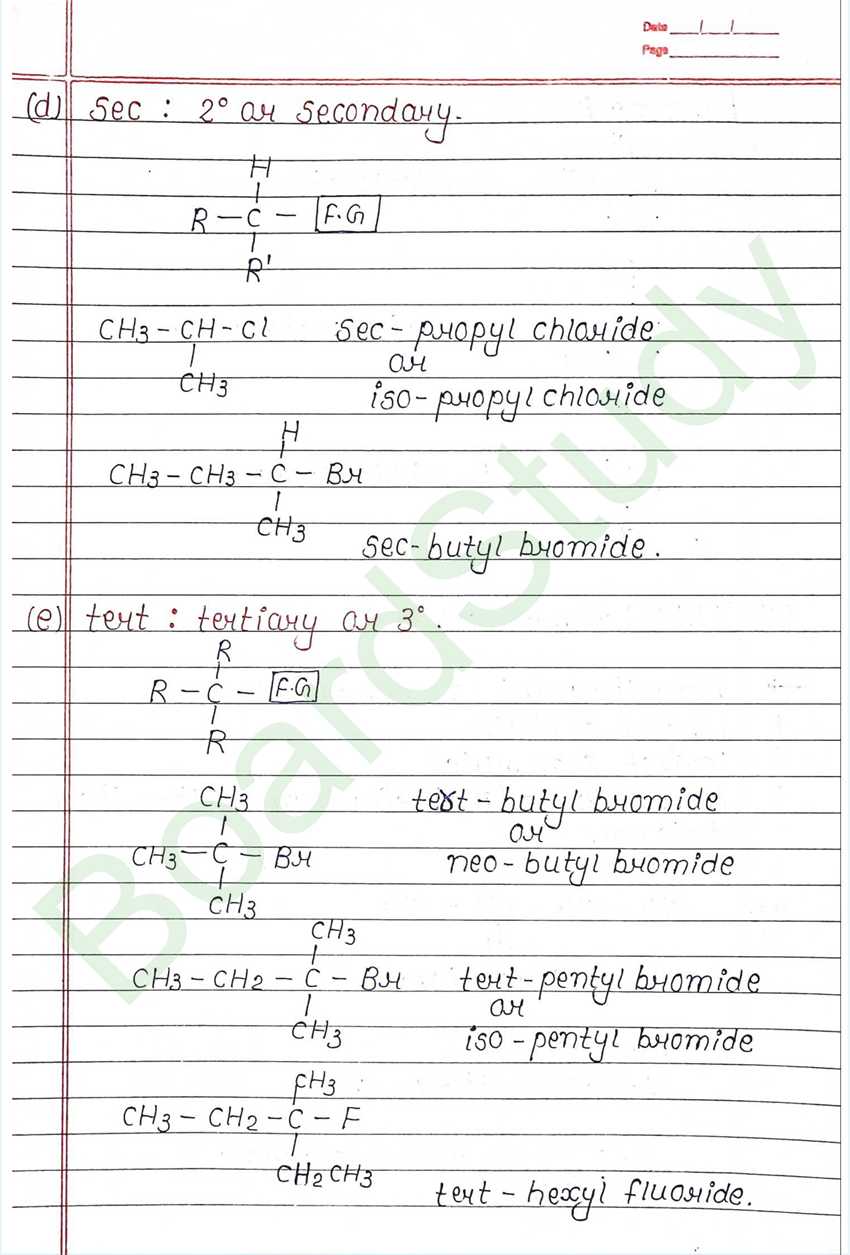 Date __/__/__
Page
(d) sec : 2° or secondary.
H
|
R – C – F.G
|
R'
CH3 – CH – Cl sec - propyl chloride
| or
CH3 iso - propyl chloride
H
|
CH3 – CH3 – C – Br
|
CH3
sec - butyl bromide.
(e) tert : tertiary or 3°.
R
|
R – C – F.G
|
R
CH3 tert - butyl bromide
| or
CH3 – C – Br neo - butyl bromide
|
CH3
CH3
|
CH3 – CH2 – C – Br tert - pentyl bromide
| or
CH3 iso - pentyl bromide
CH3
|
CH3 – CH2 – C – F
|
CH2CH3
tert - hexyl fluoride.
BoardStudy